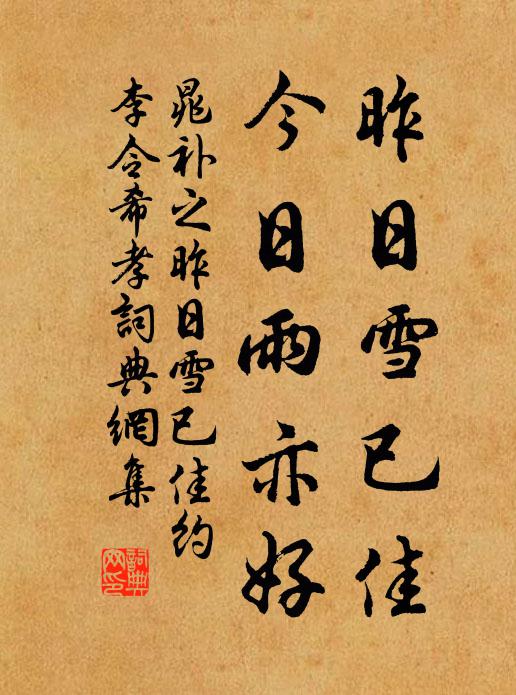 昨日雪已佳
今日雨亦好
晁补之昨日雪已佳约
李令希孝詞典網集
詞典網印